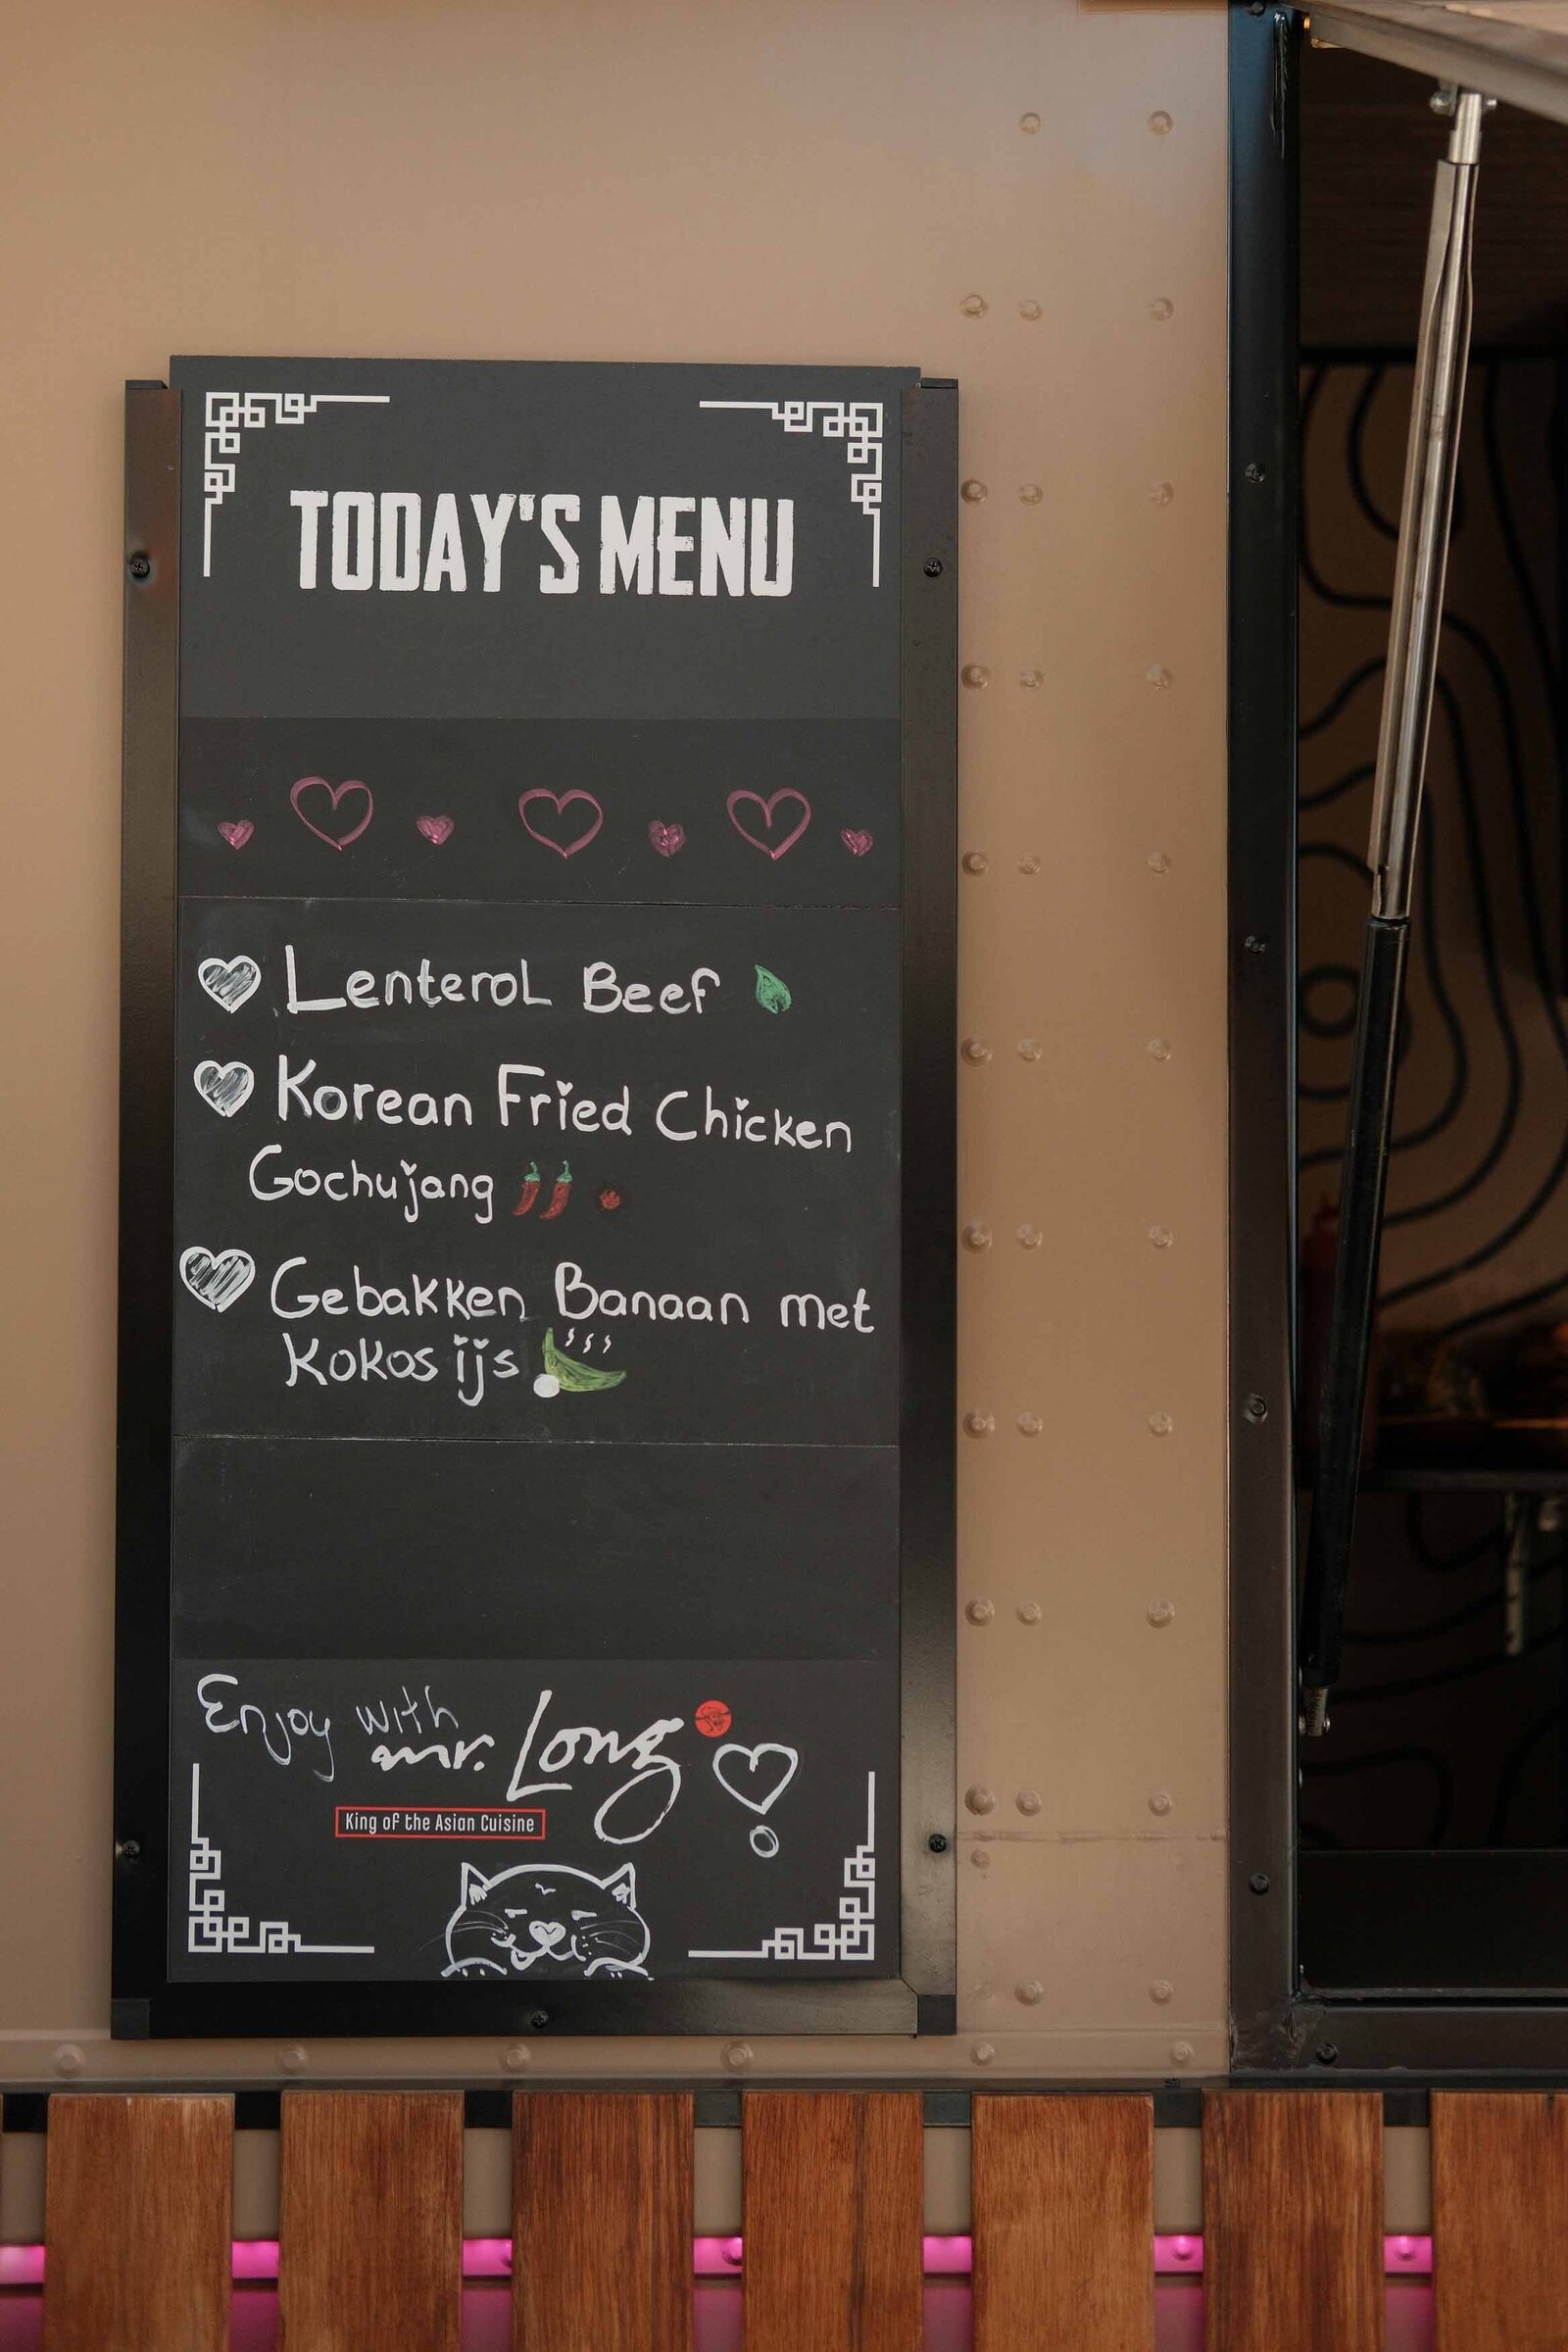 TODAY'S MENU
Lenterol Beef
Korean Fried Chicken
Gochujang
Gebakken Banaan met
Kokos ijs
Enjoy with
mr. Long
King of the Asian Cuisine